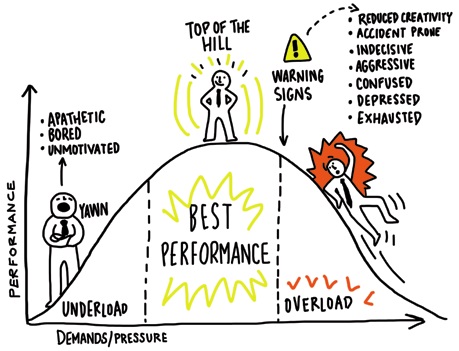 TOP OF THE
HILL
!
WARNING
SIGNS
• REDUCED CREATIVITY
• ACCIDENT PRONE
• INDECISIVE
• AGGRESSIVE
• CONFUSED
• DEPRESSED
• EXHAUSTED
• APATHETIC
• BORED
• UNMOTIVATED
YAWN
BEST
PERFORMANCE
PERFORMANCE
UNDERLOAD
OVERLOAD
DEMANDS/PRESSURE